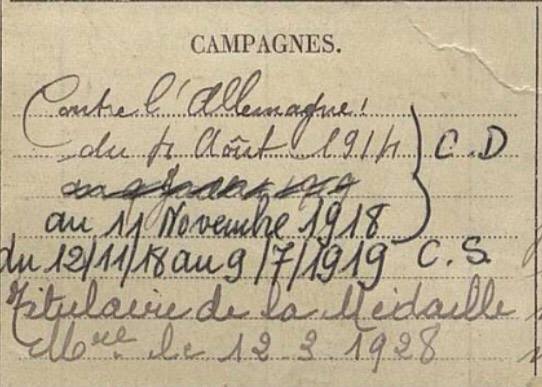 CAMPAGNES.
Contre l'Allemagne!
du 4 Août 1914 C.D
au 11 Novembre 1918
du 12/11/18 au 9/7/1919 C.S.
Titulaire de la Médaille
Mre le 12.3.1928